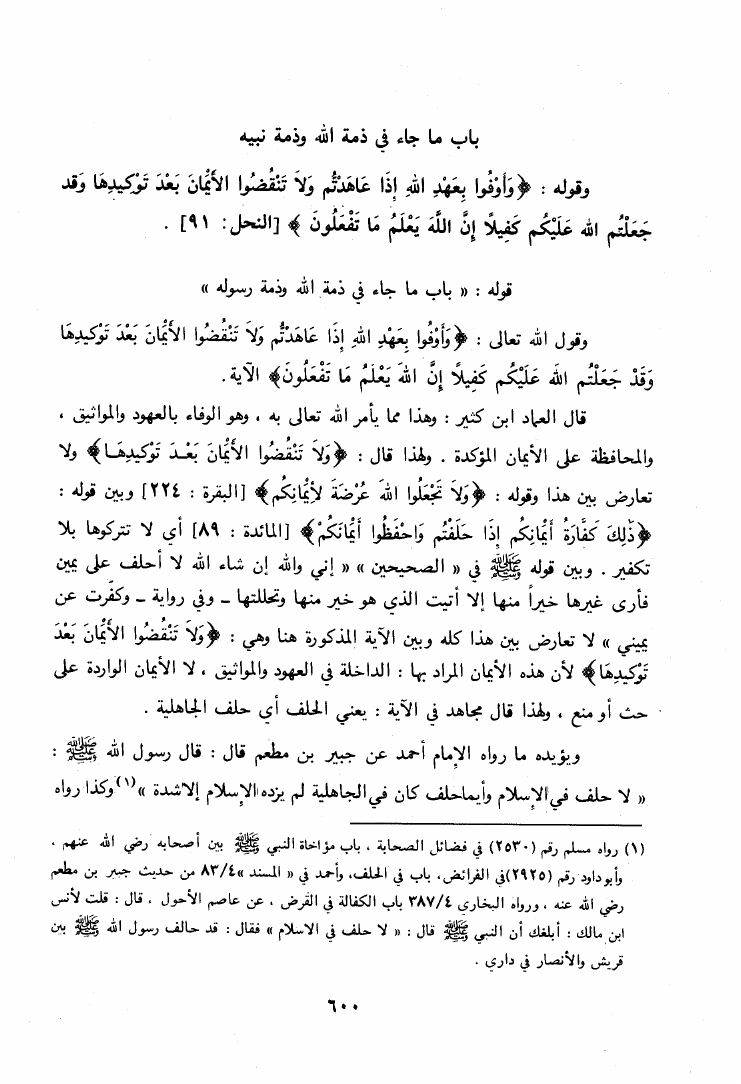 باب ما جاء في ذمة الله وذمة نبيه
وقوله : ﴿وَأَوْفُوا بِعَهْدِ اللهِ إِذَا عَاهَدْتُّم وَلَا تَنْقُضُوا الأَيْمَانَ بَعْدَ تَوْكِيدِهَا وَقد
جَعَلْتُم الله عَلَيْكُم كَفِيلًا إِنَّ اللَّهَ يَعْلَمُ مَا تَفْعَلُونَ ﴾ [النحل: ٩١] .
قوله : « باب ما جاء في ذمة الله وذمة رسوله »
وقول الله تعالى : ﴿وَأَوْفُوا بِعَهْدِ اللهِ إِذَا عَاهَدْتُّم وَلَا تَنْقُضُوا الأَيْمَانَ بَعْدَ تَوْكِيدِهَا
وَقَدْ جَعَلْتُم الله عَلَيْكُم كَفِيلًا إِنَّ اللهَ يَعْلَمُ مَا تَفْعَلُونَ﴾ الآية .
قال العماد ابن كثير : وهذا مما يأمر الله تعالى به ، وهو الوفاء بالعهود والمواثيق ،
والمحافظة على الأيمان المؤكدة . ولهذا قال : ﴿وَلَا تَنْقُضُوا الأَيْمَانَ بَعْدَ تَوْكِيدِهَا﴾ ولا
تعارض بين هذا وقوله : ﴿وَلَا تَجْعَلُوا اللهَ عُرْضَةً لأَيْمَانِكُم﴾ [البقرة : ٢٢٤] وبين قوله :
﴿ذَلِكَ كَفَّارَةُ أَيْمَانِكُم إِذَا حَلَفْتُم وَاحْفَظُوا أَيْمَانَكُمْ﴾ [المائدة : ٨٩] أي لا تتركوها بلا
تكفير . وبين قوله ﷺ في « الصحيحين » « إني والله إن شاء الله لا أحلف على يمين
فأرى غيرها خيراً منها إلا أتيت الذي هو خير منها وتحللتها ــ وفي رواية ــ وكفّرت عن
يميني » لا تعارض بين هذا كله وبين الآية المذكورة هنا وهي : ﴿وَلَا تَنْقُضُوا الأَيْمَانَ بَعْدَ
تَوْكِيدِهَا﴾ لأن هذه الأيمان المراد بها : الداخلة في العهود والمواثيق ، لا الأيمان الواردة على
حث أو منع ، ولهذا قال مجاهد في الآية : يعني الحلف أي حلف الجاهلية .
ويؤيده ما رواه الإمام أحمد عن جبير بن مطعم قال : قال رسول الله ﷺ :
« لا حلف في الإسلام وأيما حلف كان في الجاهلية لم يزده الإسلام إلا شدة »(١) وكذا رواه
(١) رواه مسلم رقم (٢٥٣٠) في فضائل الصحابة ، باب مؤاخاة النبي ﷺ بين أصحابه رضي الله عنهم ،
وأبو داود رقم (٢٩٢٥) في الفرائض، باب في الحلف، وأحمد في « المسند » ٨٣/٤ من حديث جبير بن مطعم
رضي الله عنه ، ورواه البخاري ٣٨٧/٤ باب الكفالة في القرض ، عن عاصم الأحول ، قال : قلت لأنس
ابن مالك : أبلغك أن النبي ﷺ قال : « لا حلف في الاسلام » فقال : قد حالف رسول الله ﷺ بين
قريش والأنصار في داري .
٦٠٠